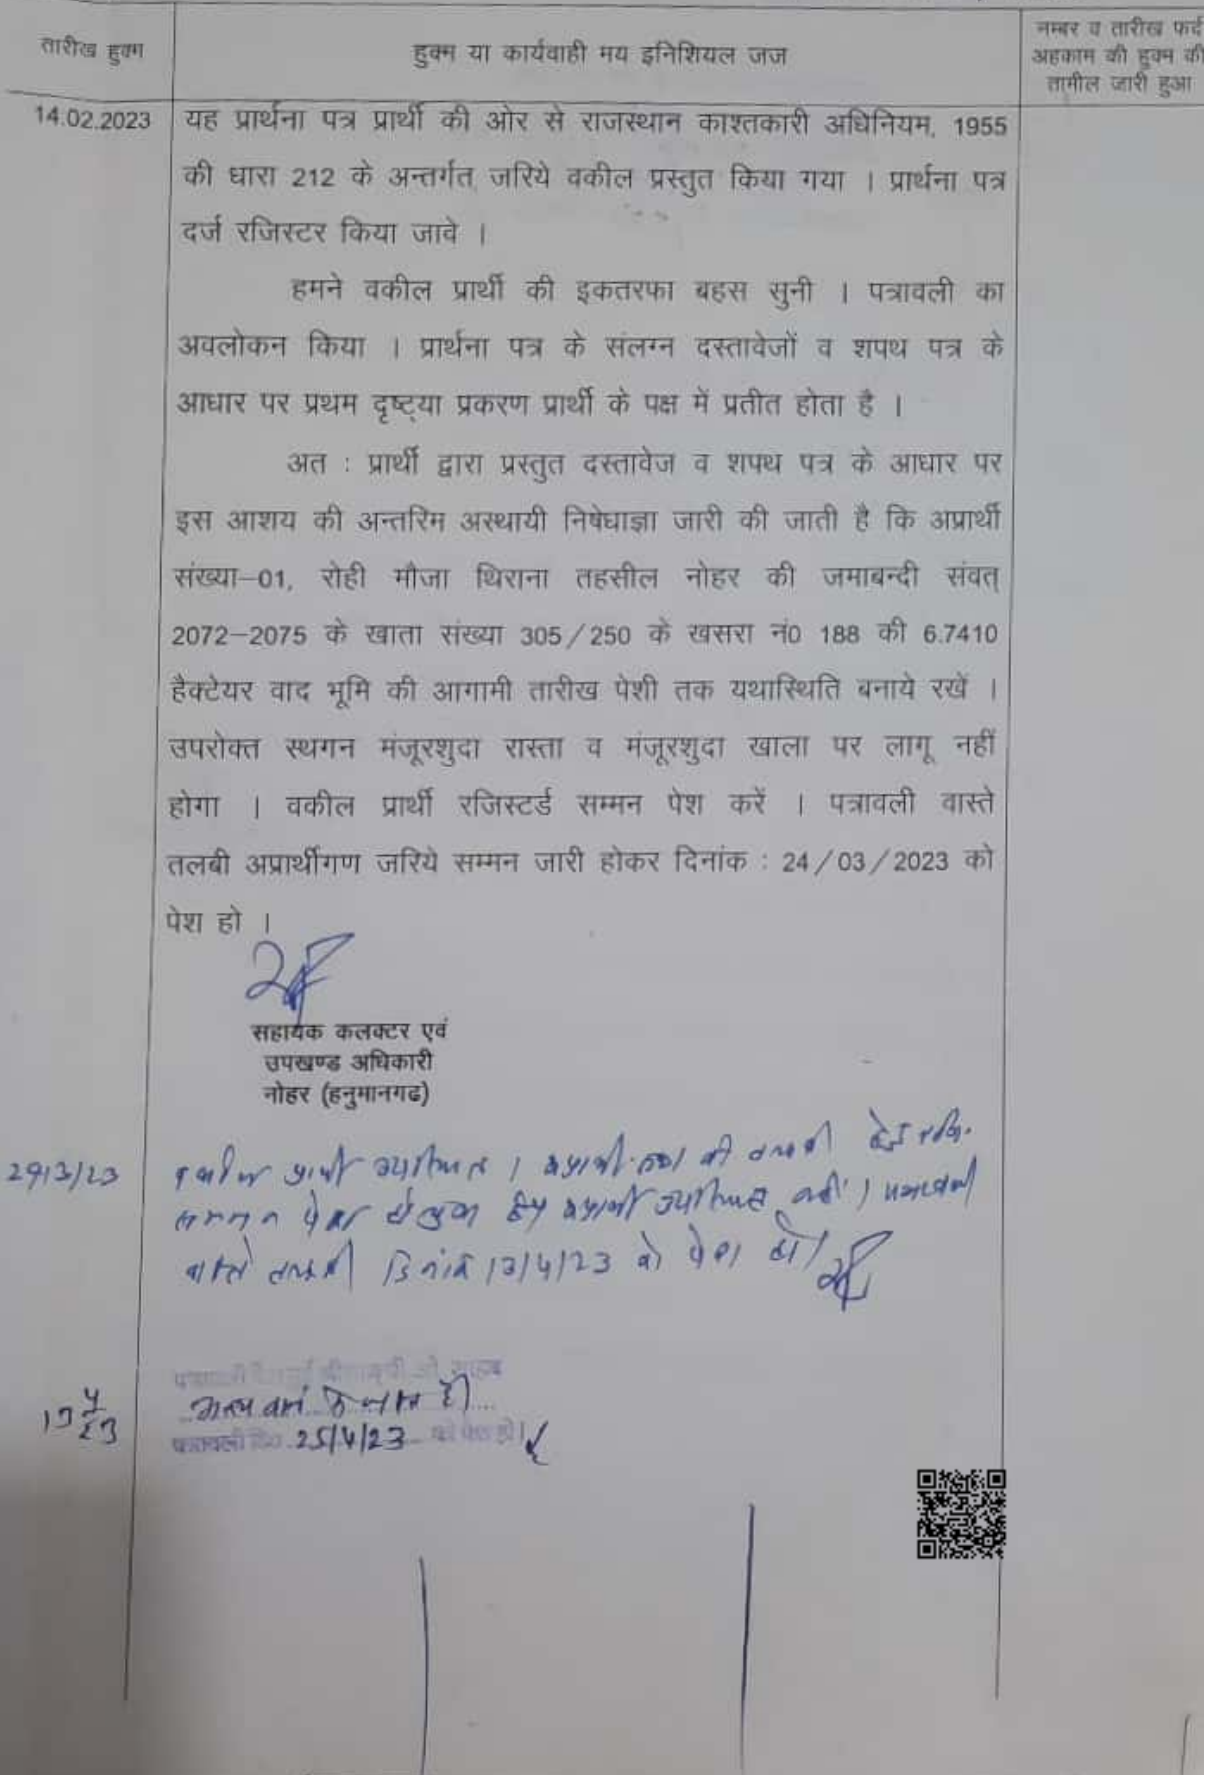 तारीख हुक्म
हुक्म या कार्यवाही मय इनिशियल जज
नम्बर व तारीख फर्द
अहकाम की हुक्म की
तामील जारी हुआ
14.02.2023
यह प्रार्थना पत्र प्रार्थी की ओर से राजस्थान काश्तकारी अधिनियम, 1955
की धारा 212 के अन्तर्गत जरिये वकील प्रस्तुत किया गया । प्रार्थना पत्र
दर्ज रजिस्टर किया जावे ।
हमने वकील प्रार्थी की इकतरफा बहस सुनी । पत्रावली का
अवलोकन किया । प्रार्थना पत्र के संलग्न दस्तावेजों व शपथ पत्र के
आधार पर प्रथम दृष्ट्या प्रकरण प्रार्थी के पक्ष में प्रतीत होता है ।
अत : प्रार्थी द्वारा प्रस्तुत दस्तावेज व शपथ पत्र के आधार पर
इस आशय की अन्तरिम अस्थायी निषेधाज्ञा जारी की जाती है कि अप्रार्थी
संख्या–01, रोही मौजा थिराना तहसील नोहर की जमाबन्दी संवत्
2072–2075 के खाता संख्या 305/250 के खसरा नं0 188 की 6.7410
हैक्टेयर वाद भूमि की आगामी तारीख पेशी तक यथास्थिति बनाये रखें ।
उपरोक्त स्थगन मंजूरशुदा रास्ता व मंजूरशुदा खाला पर लागू नहीं
होगा । वकील प्रार्थी रजिस्टर्ड सम्मन पेश करें । पत्रावली वास्ते
तलबी अप्रार्थीगण जरिये सम्मन जारी होकर दिनांक : 24/03/2023 को
पेश हो ।
सहायक कलक्टर एवं
उपखण्ड अधिकारी
नोहर (हनुमानगढ)
वकील प्रार्थी उपस्थित । अप्रार्थी की तलबी हेतु रजि.
सम्मन पेश अप्रार्थी उपस्थित नहीं । पत्रावली
वास्ते तलबी दिनांक 13/4/23 को पेश हो ।
25/4/23 को पेश हो ।